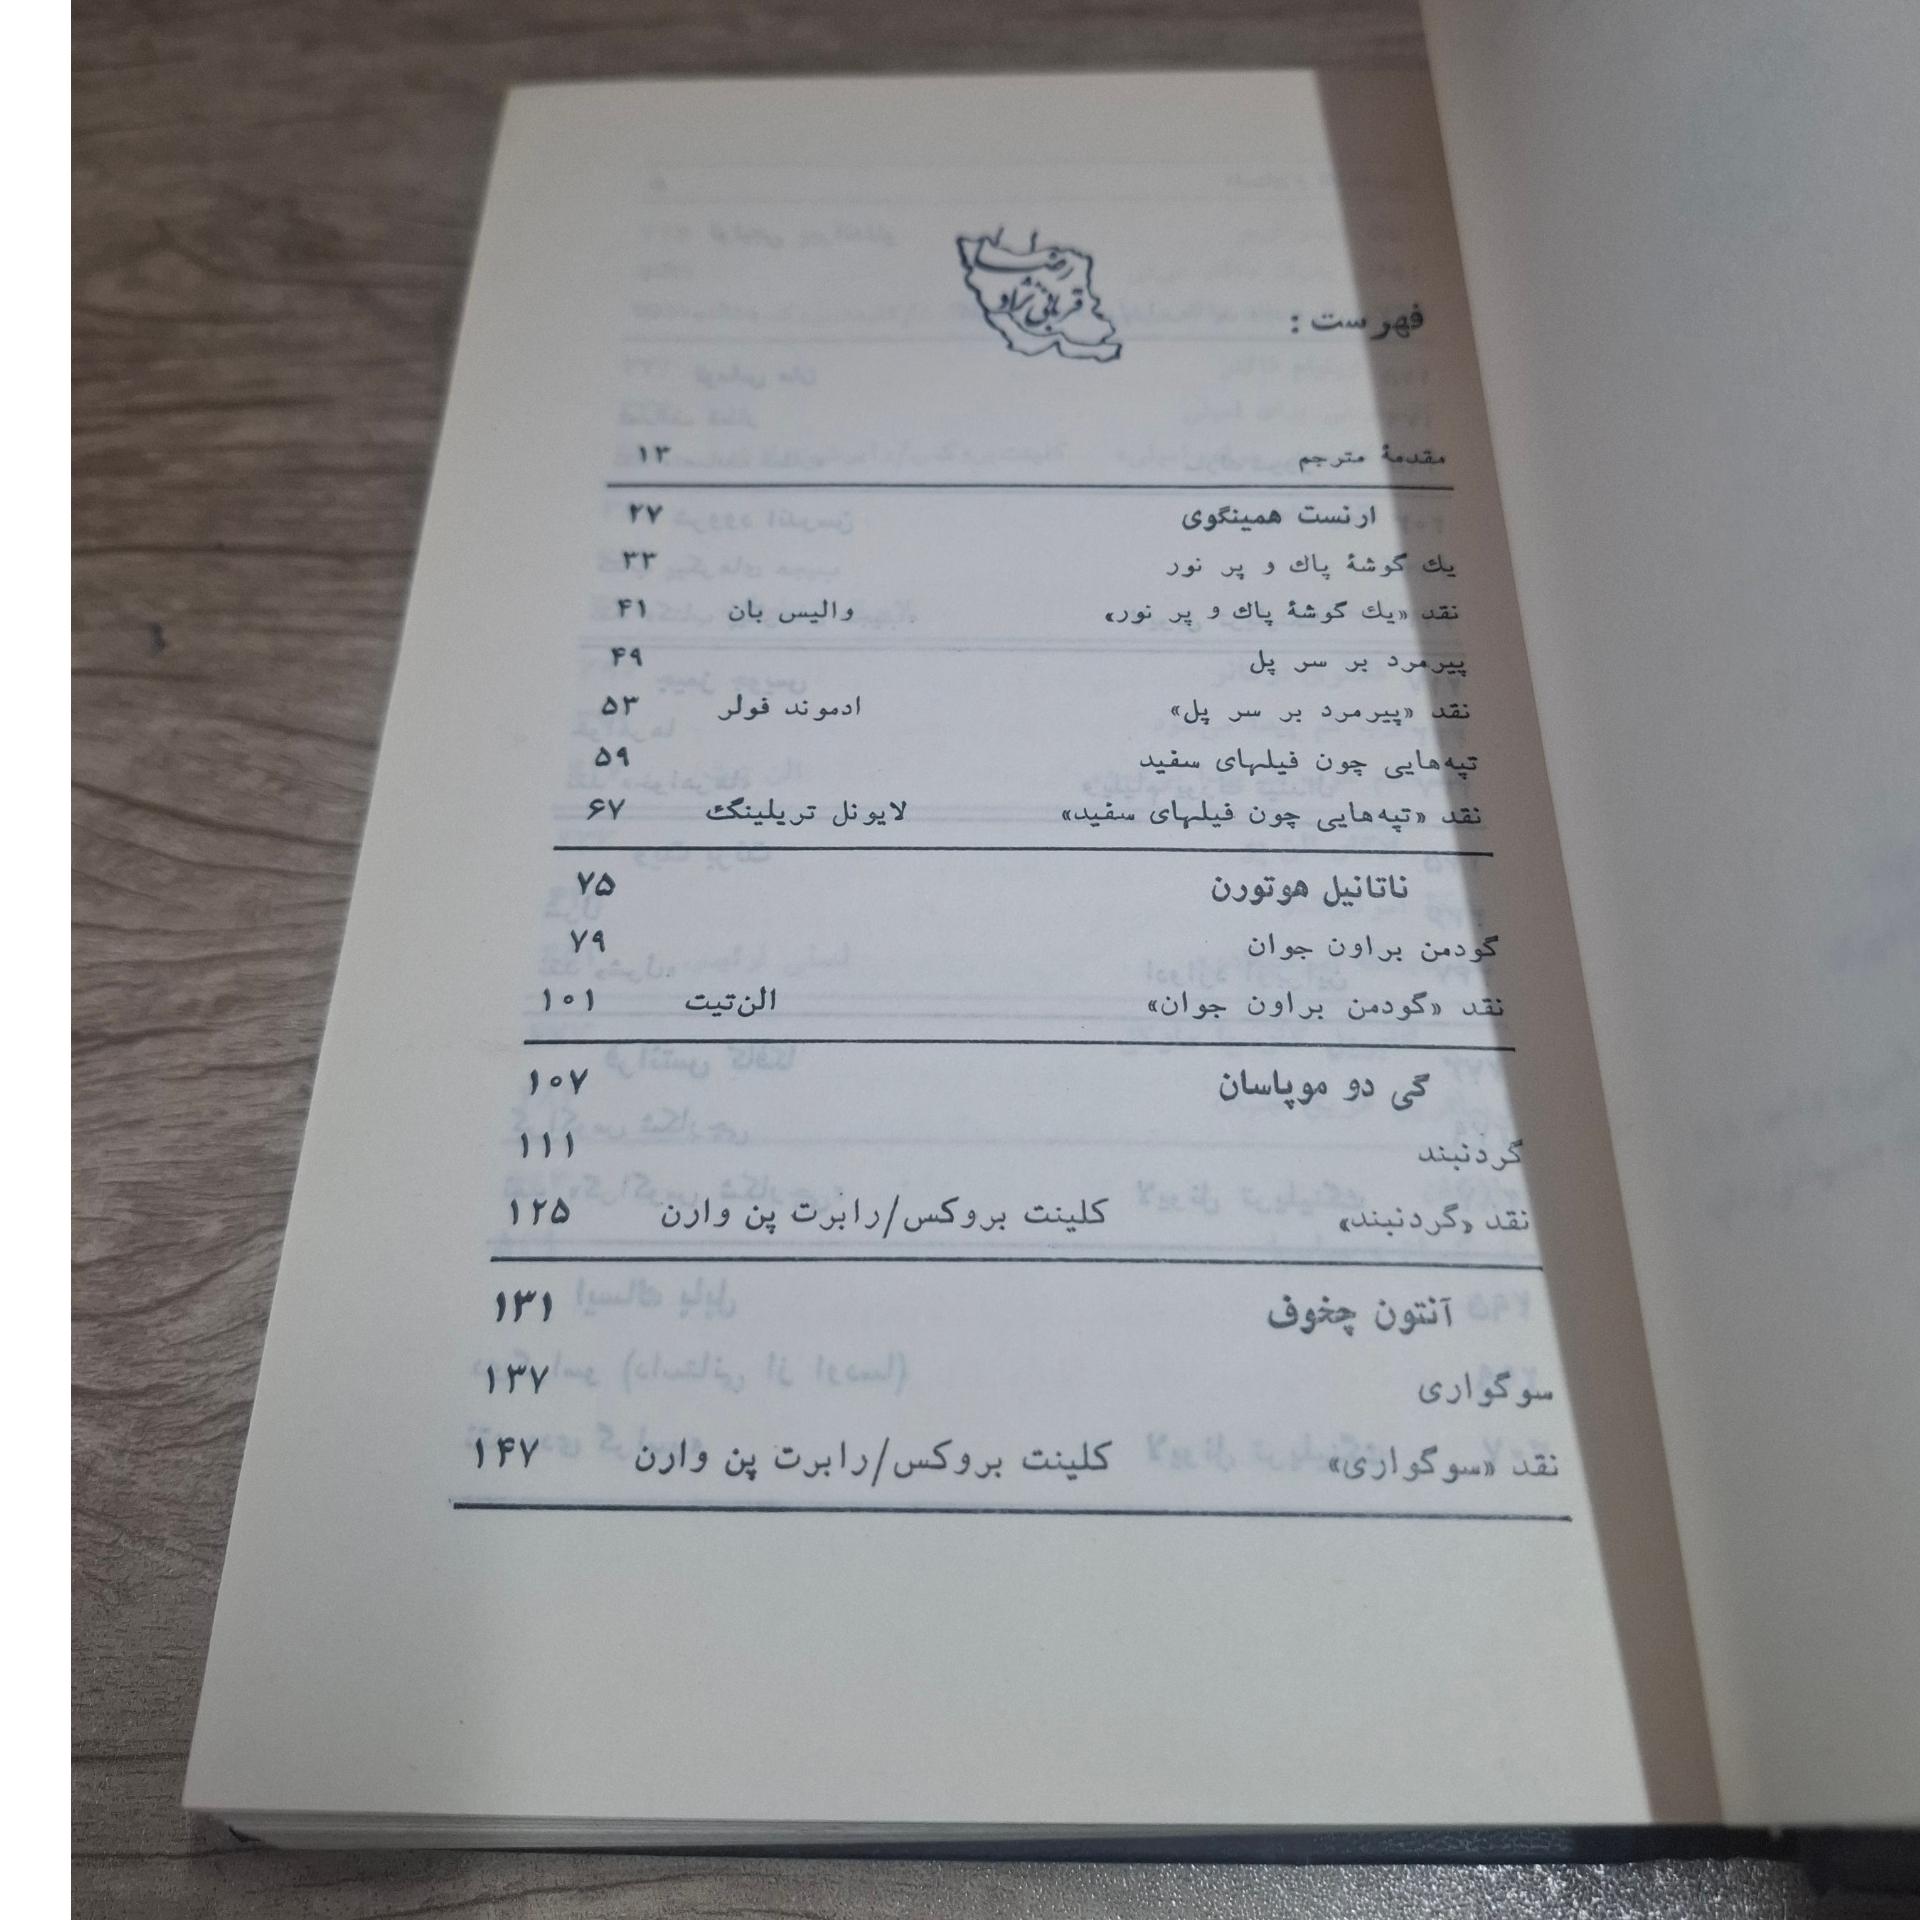 رضا
قربانی نژاد
فهرست :
مقدمهٔ مترجم ۱۳
ارنست همینگوی ۲۷
یك گوشهٔ پاك و پر نور ۳۳
نقد «یك گوشهٔ پاك و پر نور» والیس بان ۴۱
پیرمرد بر سر پل ۴۹
نقد «پیرمرد بر سر پل» ادموند فولر ۵۳
تپه‌هایی چون فیلهای سفید ۵۹
نقد «تپه‌هایی چون فیلهای سفید» لایونل تریلینگ ۶۷
ناتانیل هوتورن ۷۵
گودمن براون جوان ۷۹
نقد «گودمن براون جوان» الن‌تیت ۱۰۱
گی دو موپاسان ۱۰۷
گردنبند ۱۱۱
نقد «گردنبند» کلینت بروکس/رابرت پن وارن ۱۲۵
آنتون چخوف ۱۳۱
سوگواری ۱۳۷
نقد «سوگواری» کلینت بروکس/رابرت پن وارن ۱۴۷